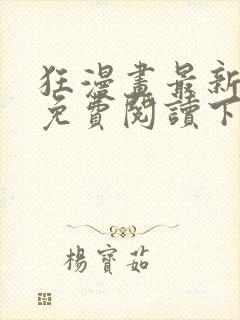 狂漫畫最新
免費閱讀下
楊寶茹